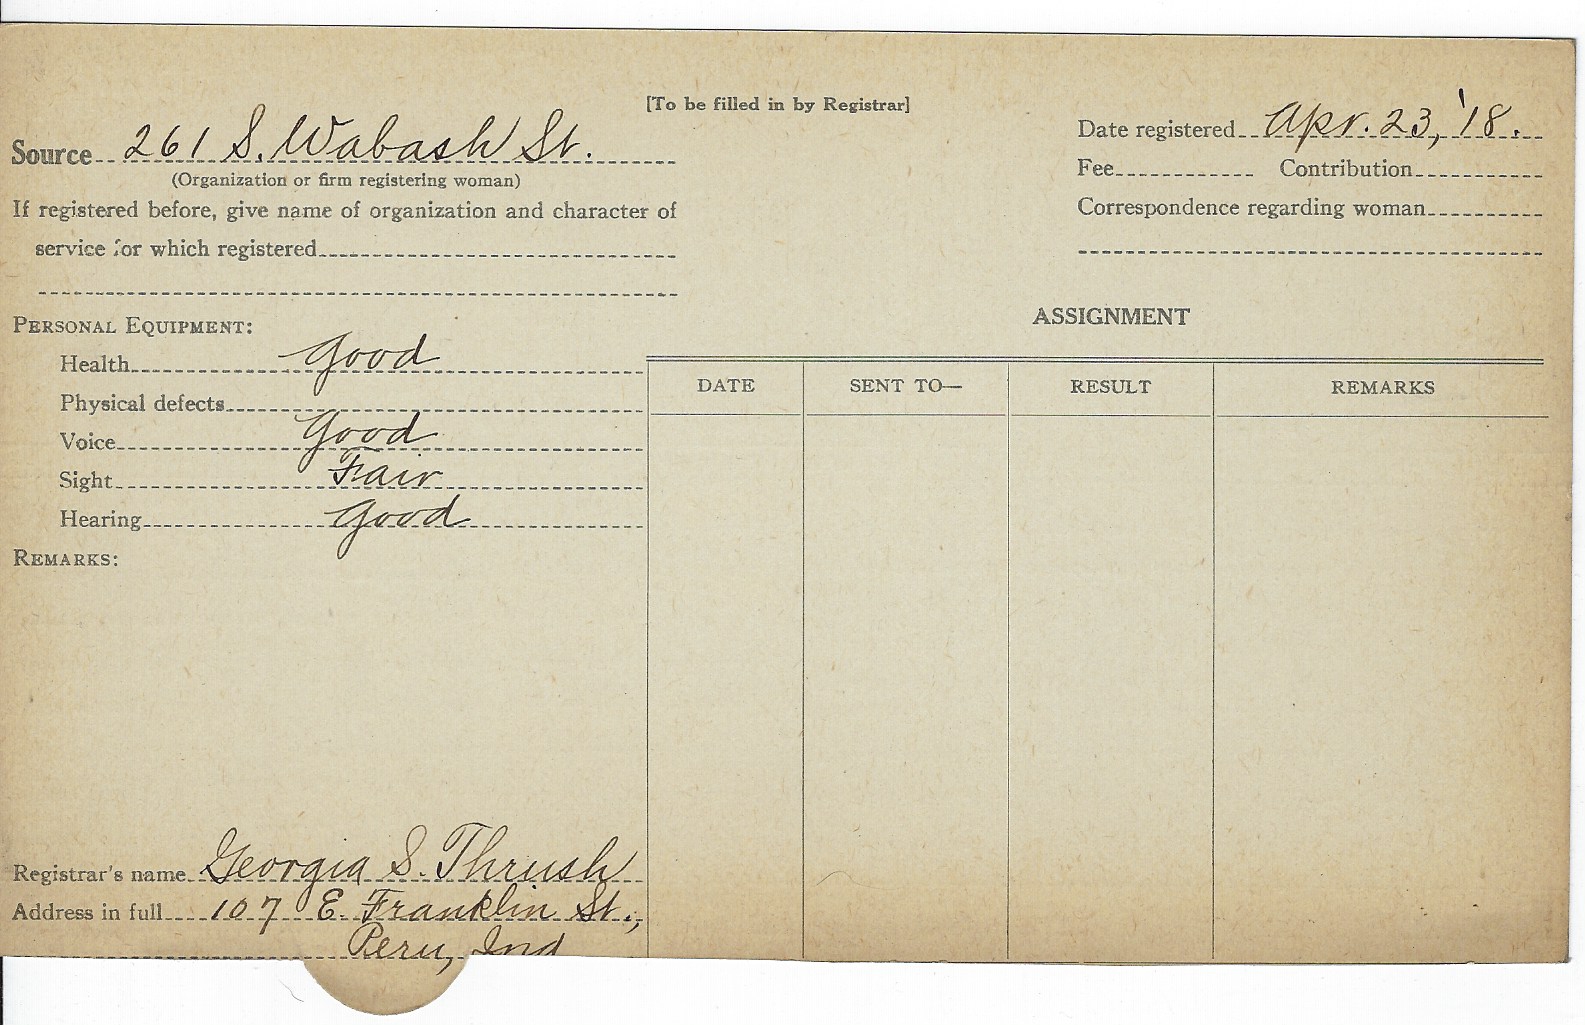 [To be filled in by Registrar]
Source 261 S. Wabash St.
(Organization or firm registering woman)
If registered before, give name of organization and character of
service for which registered
Date registered Apr. 23, '18.
Fee Contribution
Correspondence regarding woman
PERSONAL EQUIPMENT:
Health Good
Physical defects
Voice Good
Sight Fair
Hearing Good
REMARKS:
ASSIGNMENT
DATE SENT TO— RESULT REMARKS
Registrar's name Georgia S. Thrush
Address in full 107 E. Franklin St.,
Peru, Ind